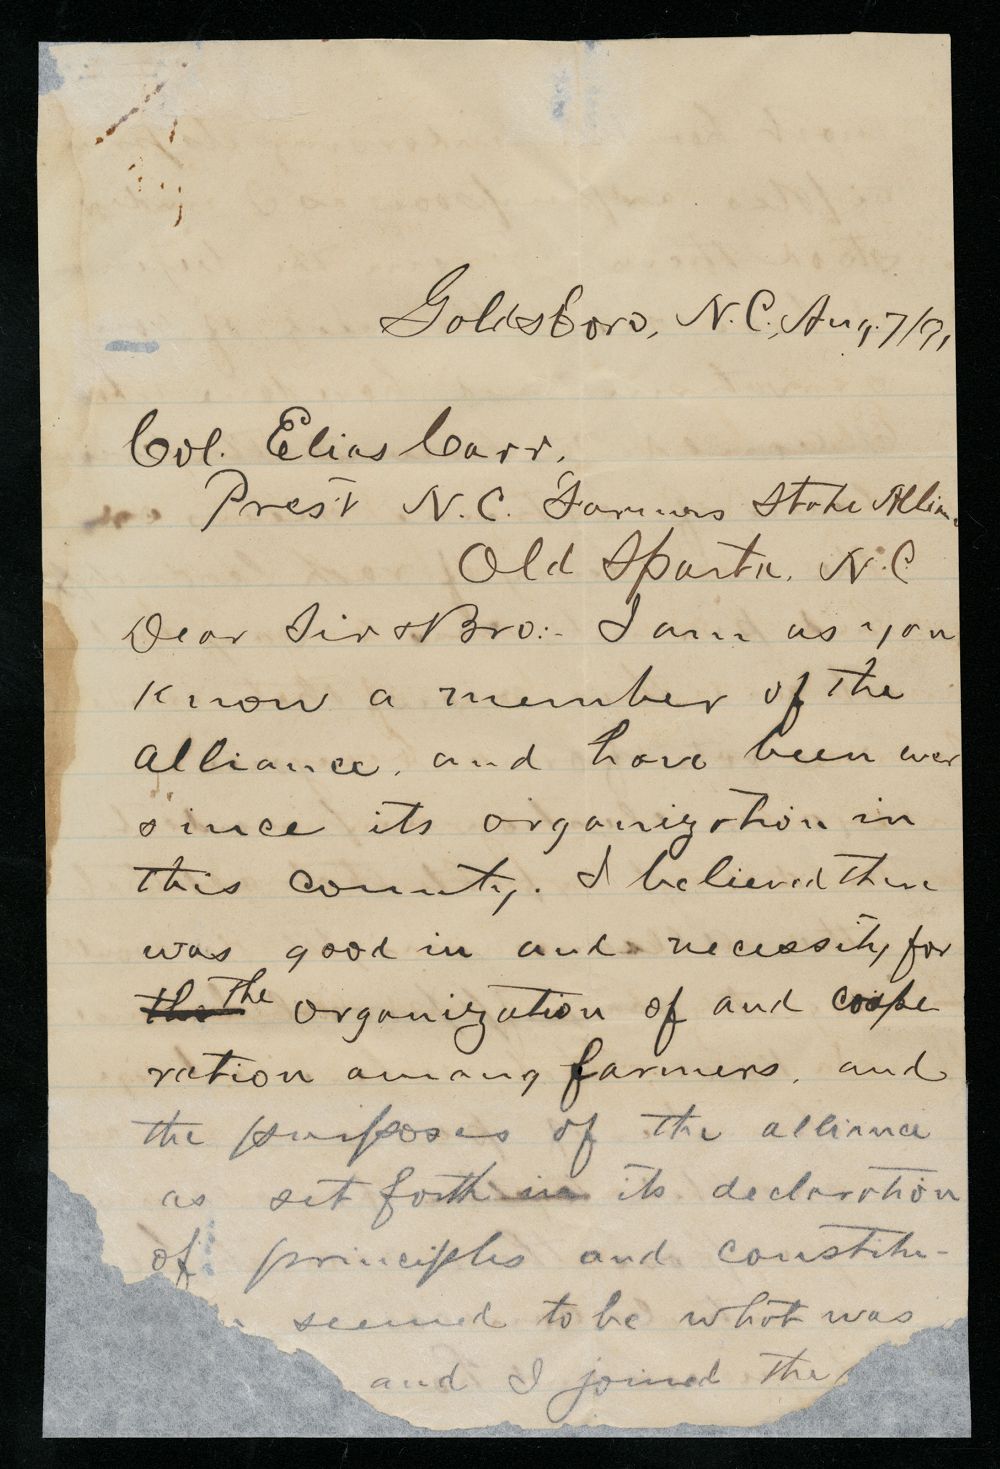 Goldsboro, N.C., Aug. 7/91
Col. Elias Carr,
Pres't N.C. Farmers State Allian
Old Sparta, N.C
Dear Sir & Bro:- I am as you
know a member of the
alliance, and have been ever
since its organization in
this county. I believed there
was good in and necessity for
the the organization of and coope
ration among farmers, and
the purposes of the alliance
as set forth in its declaration
of principles and constitu-
seemed to be what was
and I joined the